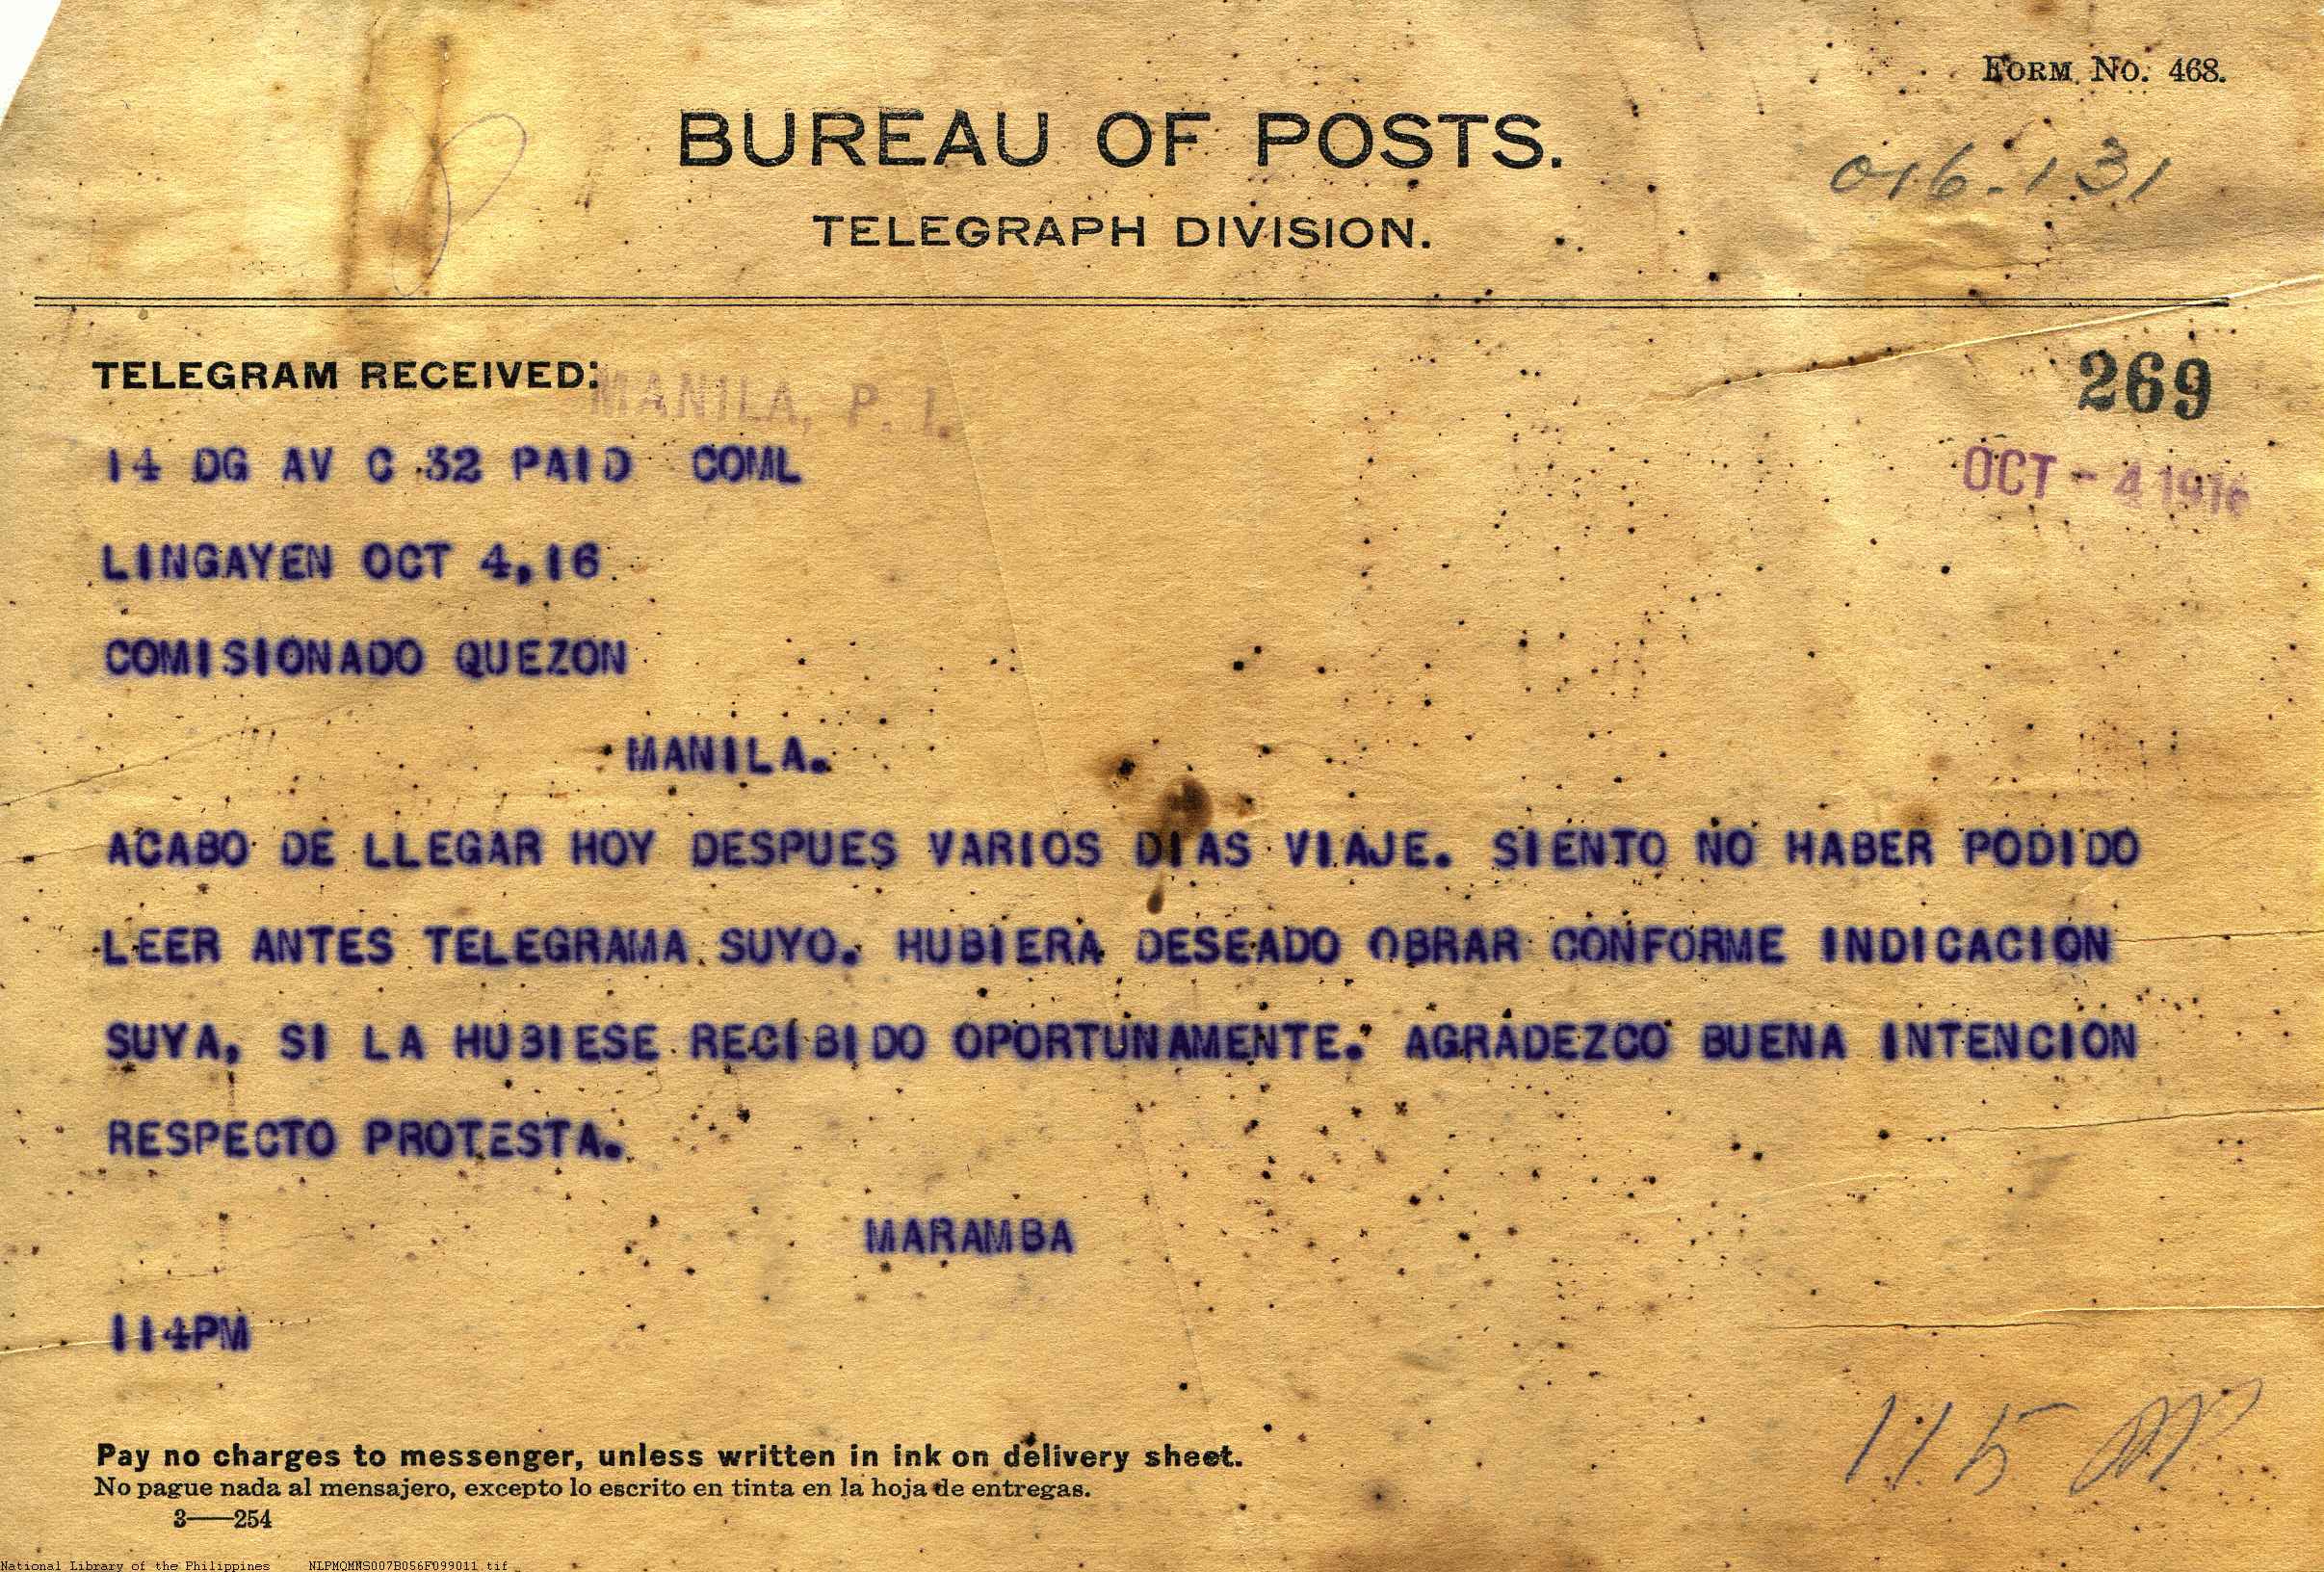 FORM NO. 468.
BUREAU OF POSTS.
016.131
TELEGRAPH DIVISION.
TELEGRAM RECEIVED:
MANILA, P. I.
269
14 DG AV C 32 PAID COML
OCT - 4 1916
LINGAYEN OCT 4,16
COMISIONADO QUEZON
MANILA.
ACABO DE LLEGAR HOY DESPUES VARIOS DIAS VIAJE. SIENTO NO HABER PODIDO
LEER ANTES TELEGRAMA SUYO. HUBIERA DESEADO OBRAR CONFORME INDICACION
SUYA, SI LA HUBIESE RECIBIDO OPORTUNAMENTE. AGRADEZCO BUENA INTENCION
RESPECTO PROTESTA.
MARAMBA
114PM
115
Pay no charges to messenger, unless written in ink on delivery sheet.
No pague nada al mensajero, excepto lo escrito en tinta en la hoja de entregas.
3—254
National Library of the Philippines NLPMQMNS007B056F099011.tif